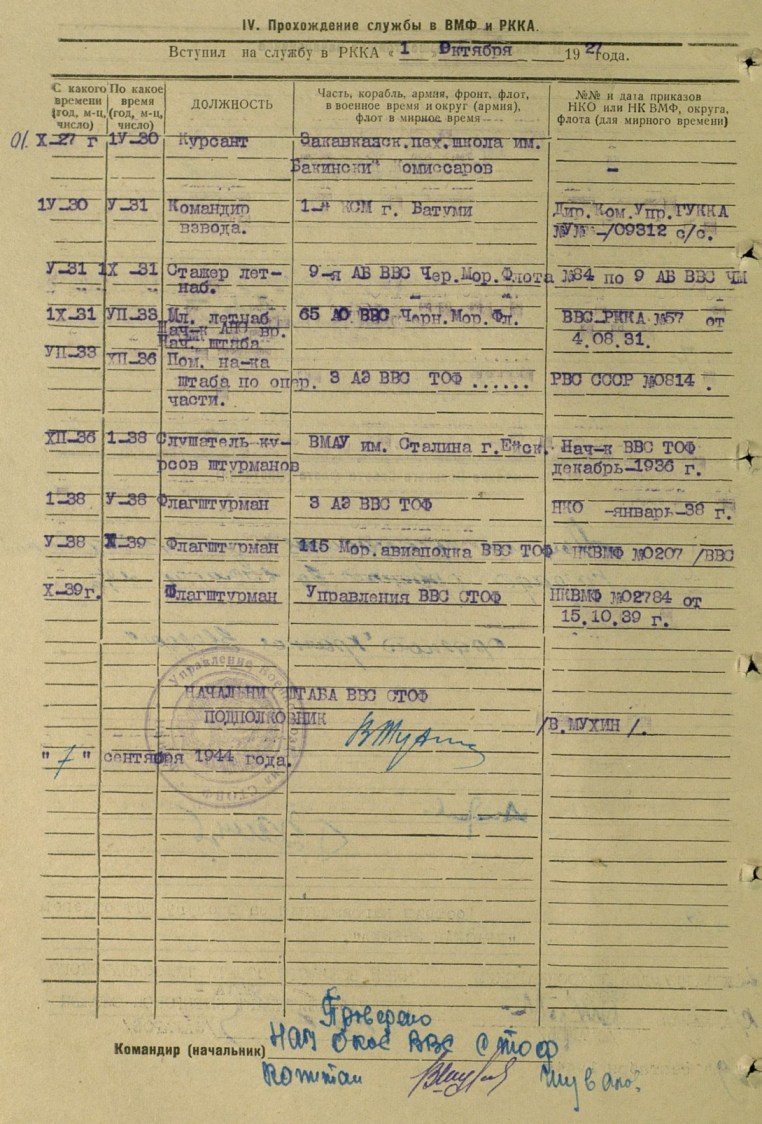 IV. Прохождение службы в ВМФ и РККА.
Вступил на службу в РККА « 1 Октября 1927 года.
С какого времени (год, м-ц, число) По какое время (год, м-ц, число) ДОЛЖНОСТЬ Часть, корабль, армия, фронт, флот, в военное время и округ (армия), флот в мирное время №№ и дата приказов НКО или НК ВМФ, округа, флота (для мирного времени)
01. X-27 г 1У-30 Курсант Закавказск.пех.школа им.
Бакински" комиссаров -
1У-30 У-31 Командир г. Батуми Дир.Ком.Упр.ГУККА
взвода. №У№ -/09312 с/с.
У-31 1X-31 Стажер лет- 9-я АБ ВВС Чер.Мор.Флота №84 по 9 АБ ВВС ЧМ
наб.
1X-31 УП-33 Мл. летнаб 65 АО ВВС Черн.Мор.Фл. ВВС РККА №57 от
Нач-к вр.
Нач. штаба 4.08.31.
УП-33 ХП-36 Пом. на-ка
штаба по опер. 3 АЭ ВВС ТОФ ...... РВС СССР №0814 .
части.
ХП-36 1-38 Слушатель ку- ВМАУ им. Сталина г.Ейск. Нач-к ВВС ТОФ
рсов штурманов декабрь-1936 г.
1-38 У-38 Флагштурман 3 АЭ ВВС ТОФ НКО -январь-38 г.
У-38 X-39 Флагштурман 115 Мор.авиаполка ВВС ТОФ НКВМФ №0207 /ВВС
X-39г. Флагштурман Управления ВВС СТОФ НКВМФ №02784 от
15.10.39 г.
НАЧАЛЬНИК ШТАБА ВВС СТОФ
ПОДПОЛКОВНИК /В.МУХИН/.
" 7 " сентября 1944 года.
Проверено
Командир (начальник) НАЧ ВВС СТОФ
Капитан